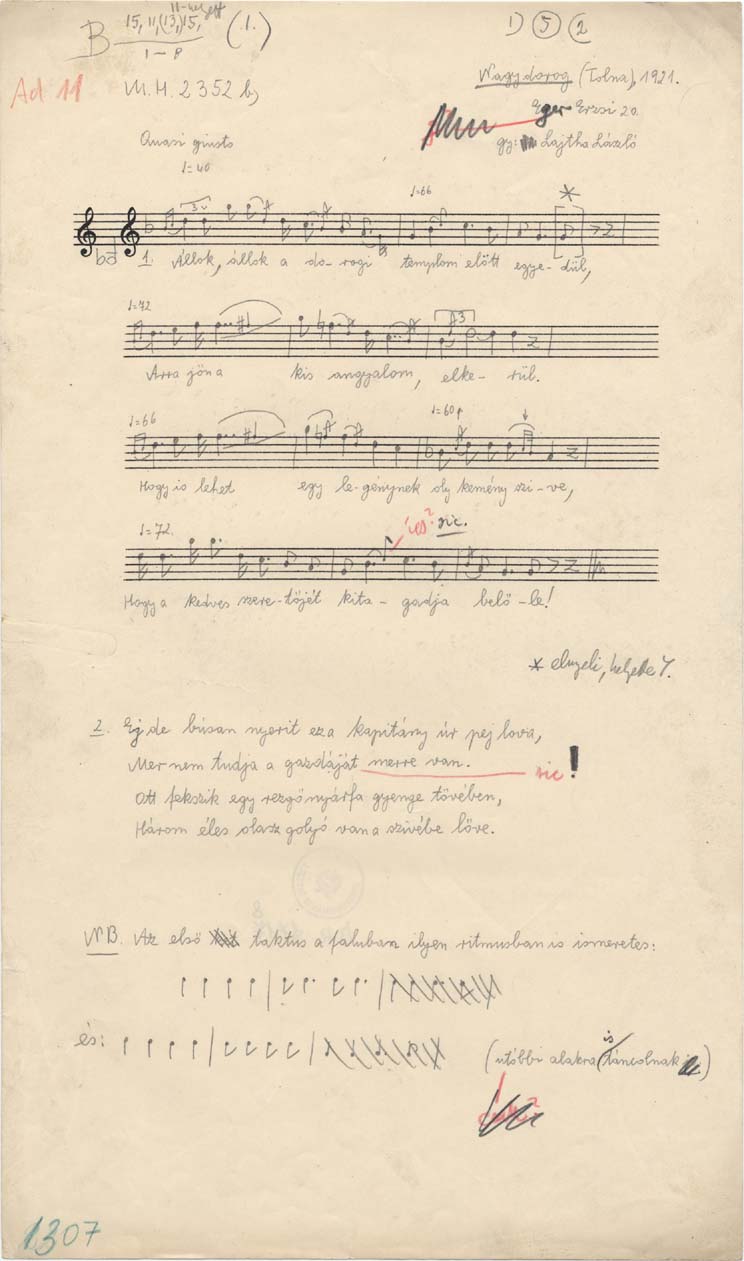 11-nek
B 15, 11, (13,) 15, (1.) 1) 5 2
1–8
Ad 11
M.H. 2352 b)
Nagydorog (Tolna), 1921.
Eger Erzsi 20.
gy: Lajtha László
Quasi giusto
♩=40 ♩=66 *
1. Állok, állok a do-rogi templom előtt egye-dül,
♩=72 3
Arra jön a kis angyalom, elke-rül.
♩=66 ♩=60
Hogy is lehet egy le-génynek oly kemény szí-ve,
♩=72. sic.
Hogy a kedves szere-tőjét kita-gadja belő-le!
* elnyeli, helyette 7.
2. Ej de búsan nyerit ez a kapitány úr pej lova,
Mer nem tudja a gazdáját merre van. sic!
Ott fekszik egy rezgőnyárfa gyenge tövében,
Három éles olasz golyó van a szivébe lőve.
NB. Az első taktus a faluban ilyen ritmusban is ismeretes:
és: (utóbbi alakra is táncolnak)
1307